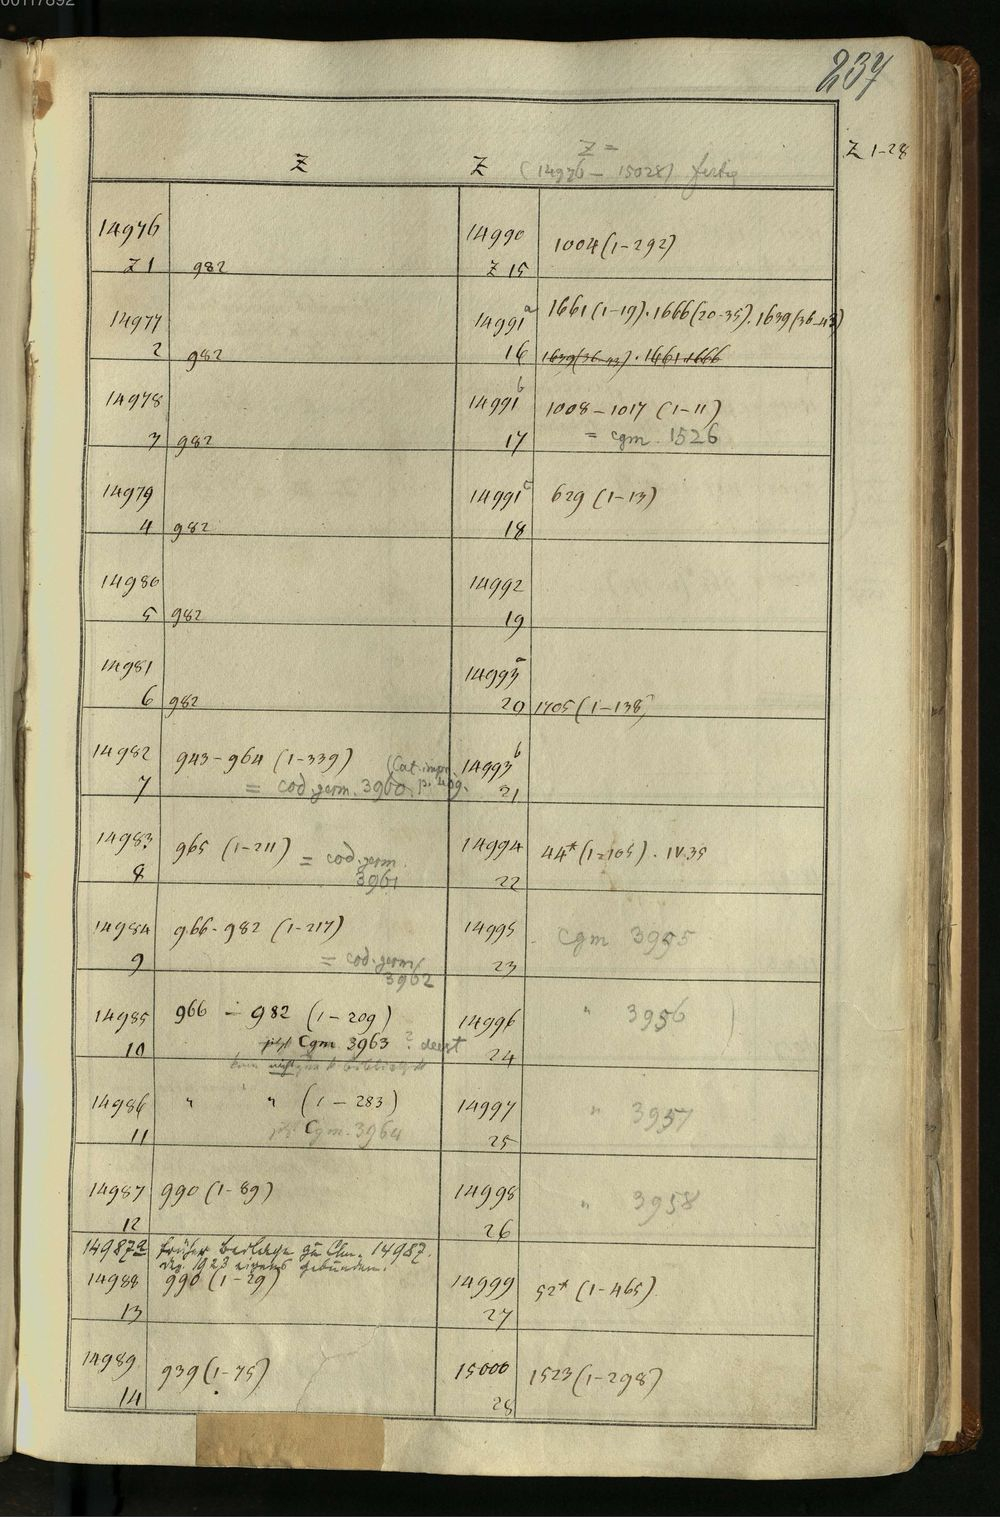 00117892
237
Z 1-28
Z
Z
Z =
(14976 – 15028) fertig
14976
Z 1 982
14977
2 982
14978
3 982
14979
4 982
14980
5 982
14981
6 982
14982 943-964 (1-339) (Cat. impr. p. 409.
7 = cod. germ. 3960
14983 965 (1-211) = cod. germ.
8 3961
14984 966-982 (1-217)
9 = cod. germ.
3962
14985 966 – 982 (1-209)
10 jetzt Cgm 3963 ? deest
nicht
14986 " " (1-283)
11 jetzt Cgm. 3964
14987 990 (1-89)
12
14987a früher Beilage zu Clm. 14987.
1923 eigens gebunden.
14988 990 (1-29)
13
14989 939 (1-75)
14
14990 1004 (1-292)
Z 15
14991a 1661 (1-19). 1666 (20-35). 1639 (36-43)
16 1639 (36-43) . 1661 + 1666
14991b 1008-1017 (1-11)
17 = cgm. 1526
14991c 629 (1-13)
18
14992
19
14993a
20 1705 (1-138)
14993b
21
14994 44* (1-105) . IV.35
22
14995 cgm 3955
23
14996 " 3956
24
14997 " 3957
25
14998 " 3958
26
14999 52* (1-465)
27
15000 1523 (1-298)
28